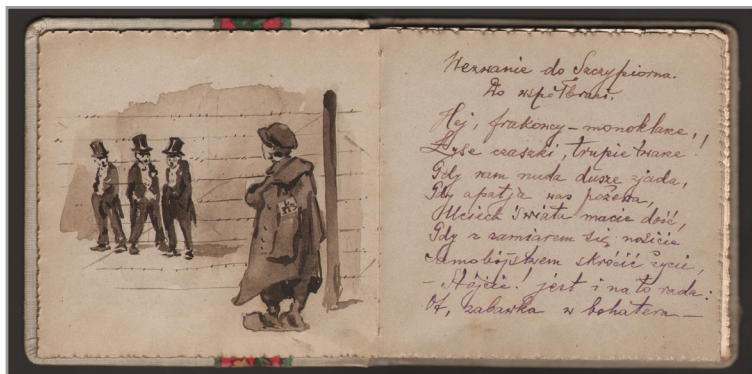 Wezwanie do Szczypiorna.
Do współbraci.
Hej, frakowcy – monoklarze,!
Łyse czaszki, trupie twarze!
Gdy wam nuda duszę zjada,
Gdy apatja was pożera,
Uciech świata macie dość,
Gdy z zamiarem się nosicie
Samobójstwem skrócić życie,
– Stójcie! jest i na to rada:
Ot, zabawka w bohatera –